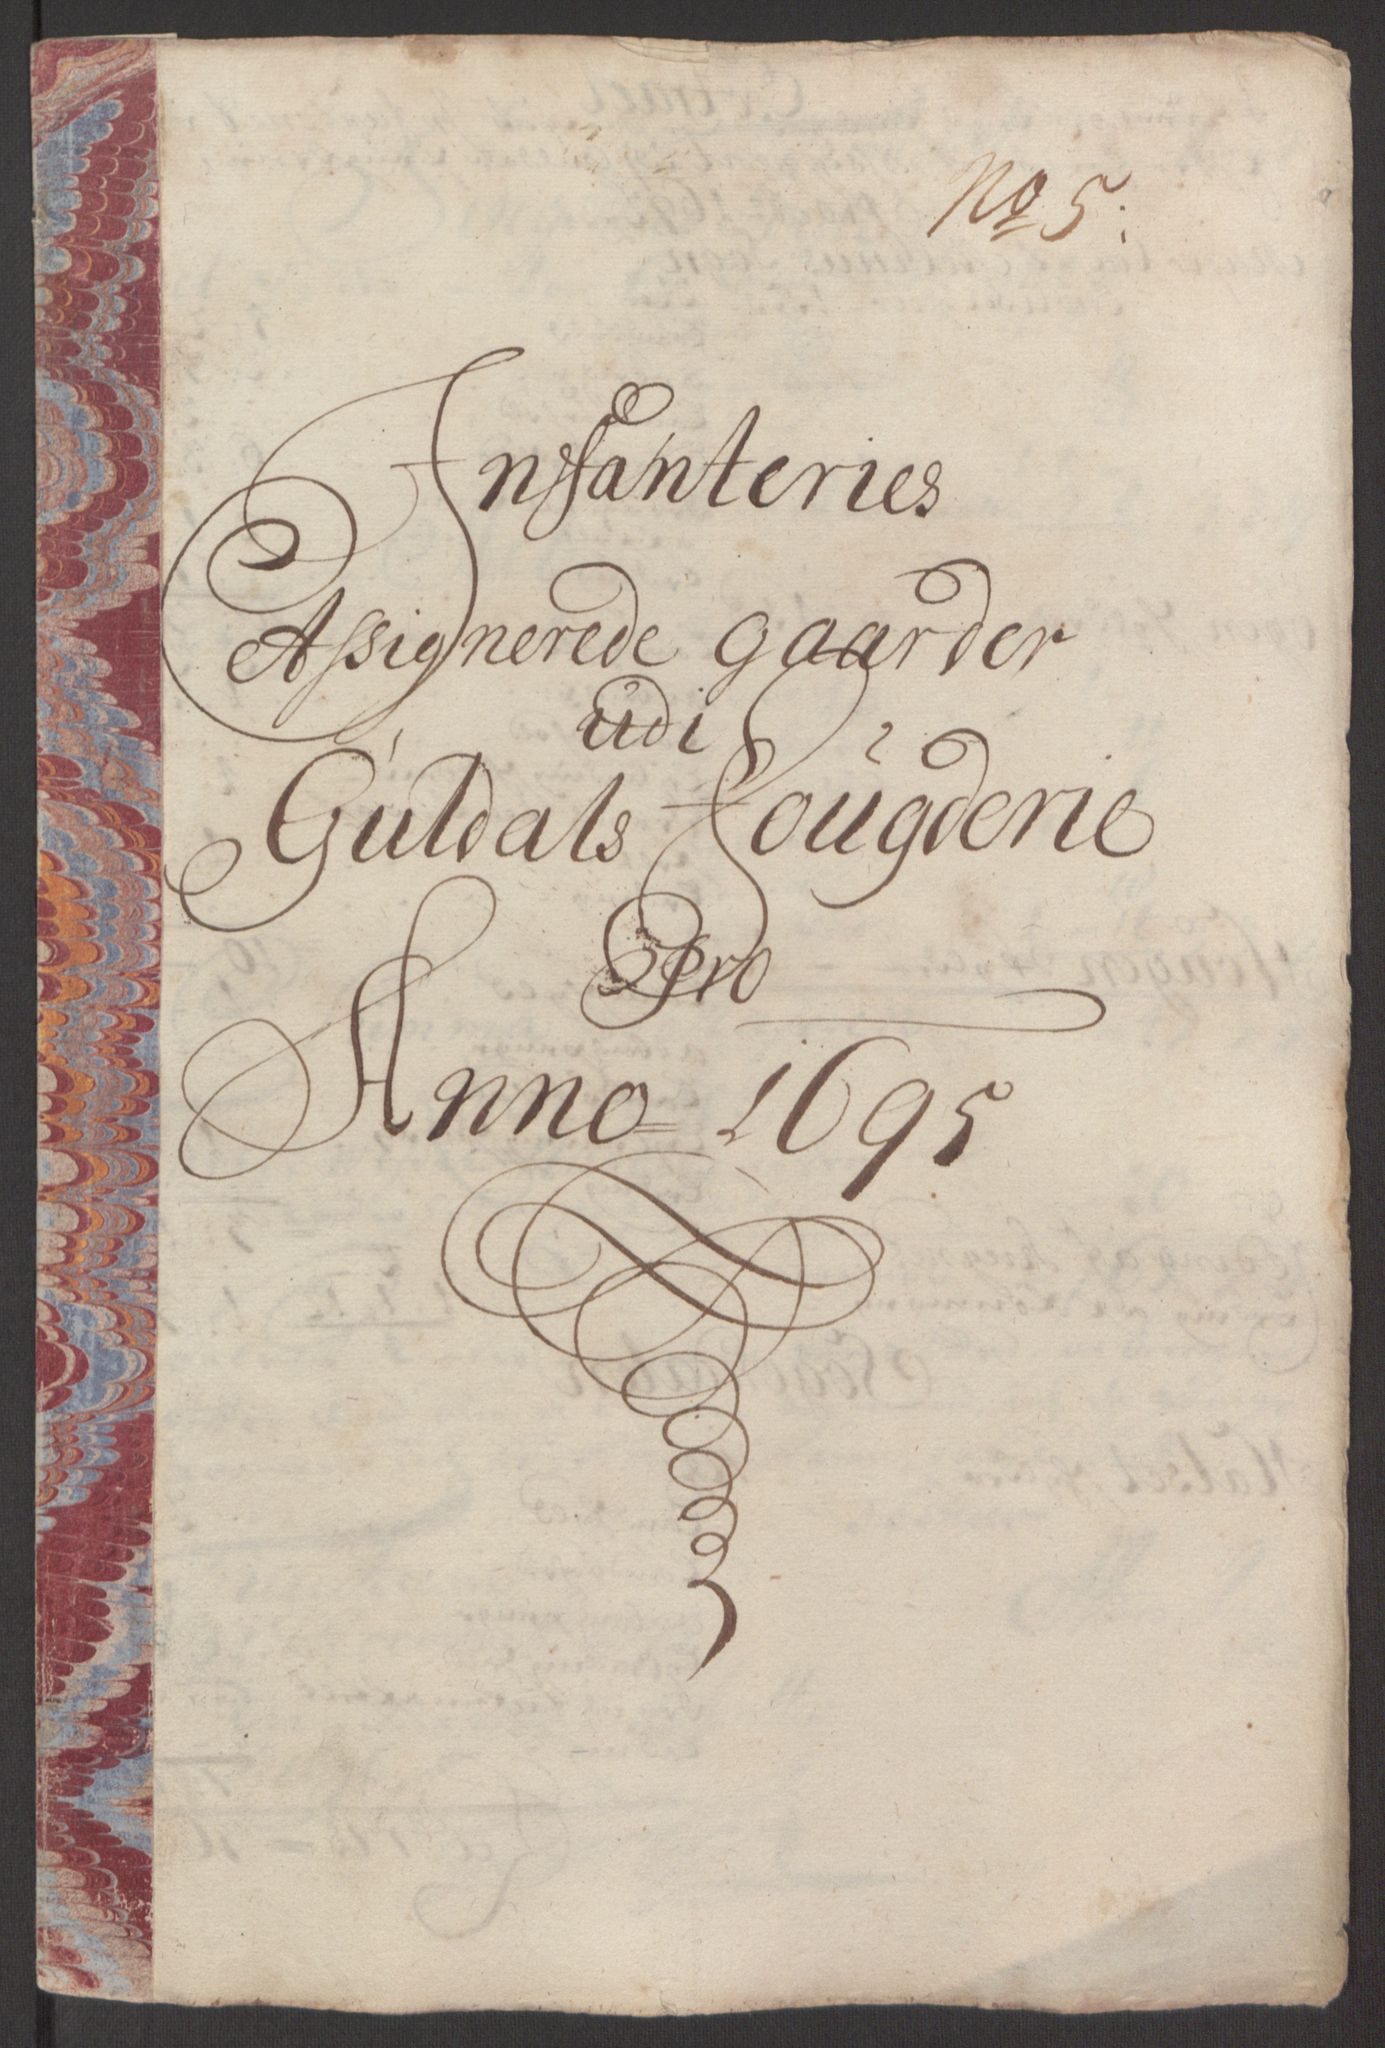 No 5:
Infanteries
Assignerede gaarder
udi
Guldals Fougderie
Pro
Anno 1695